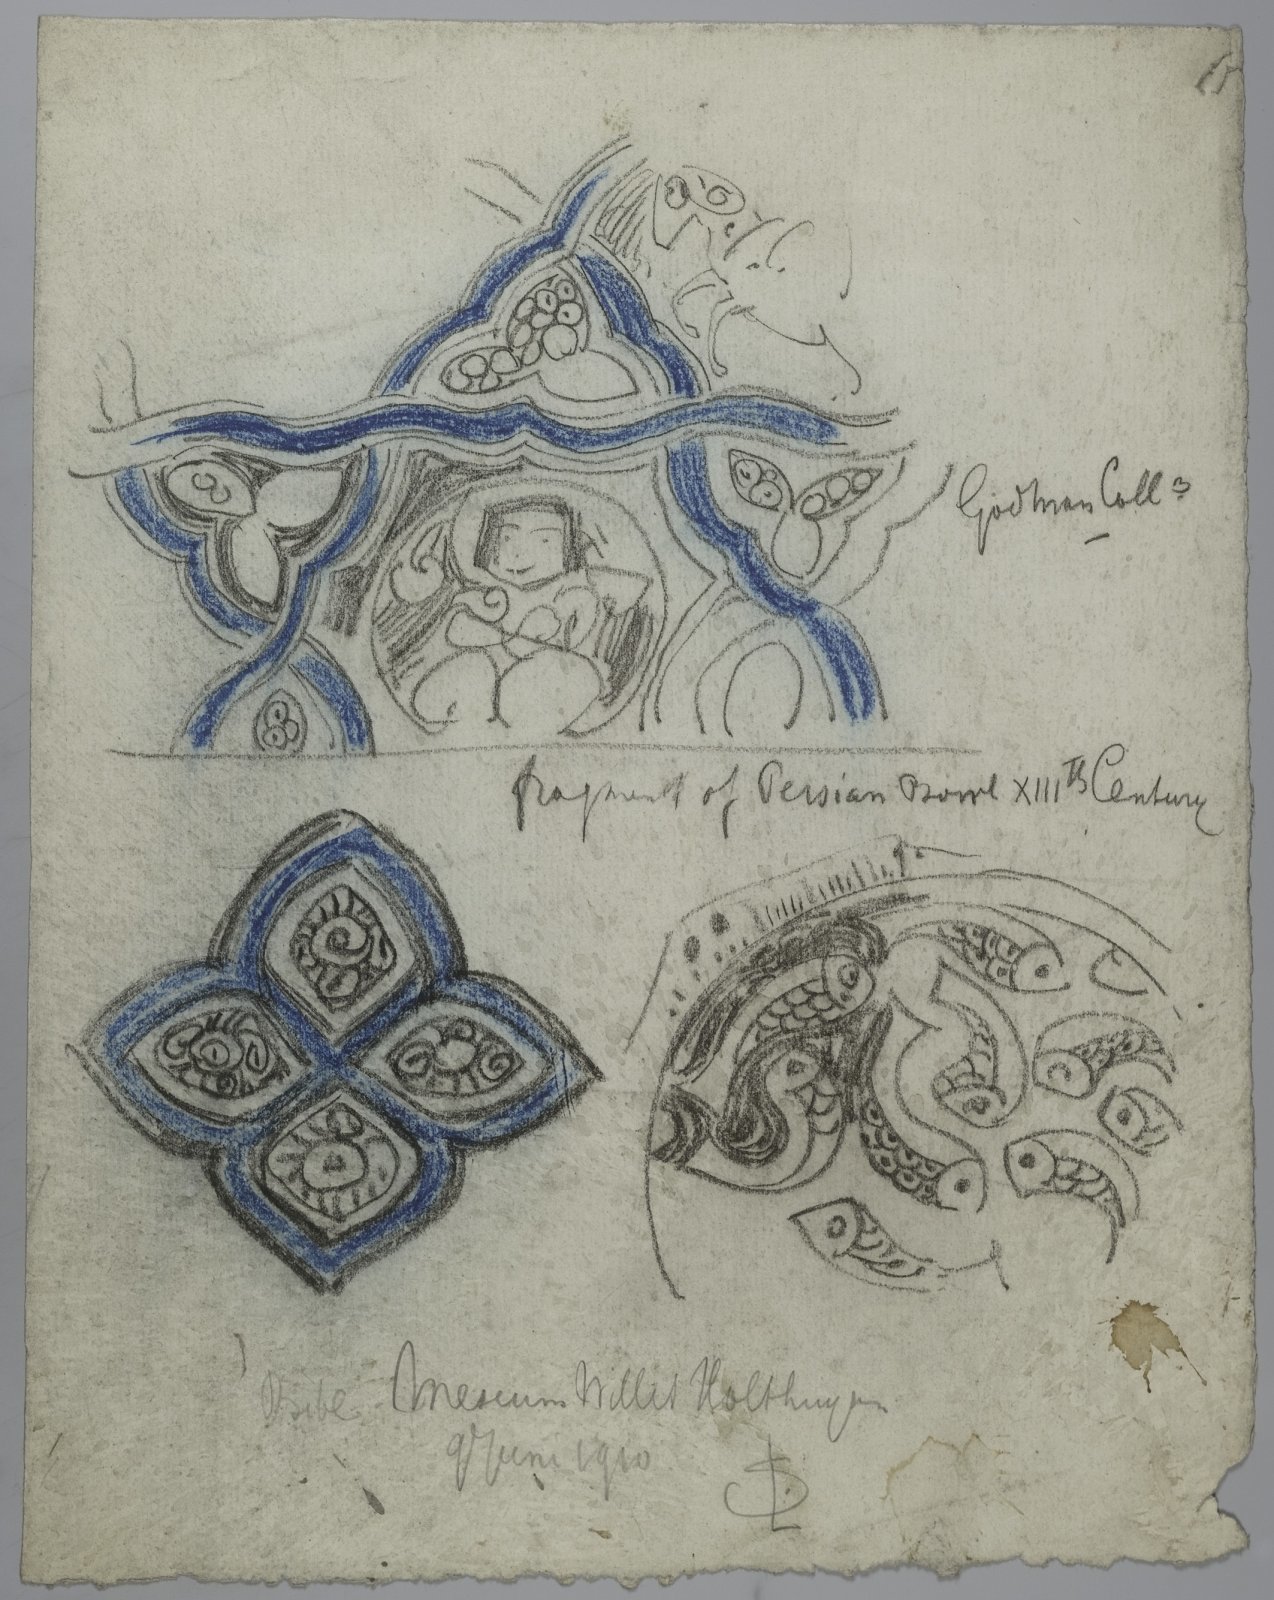 15
Godman Coll ⁿ
fragment of Persian Bowl XIIIth Century
Bibl. Museum Willet Holthuysen
9 Juni 1910